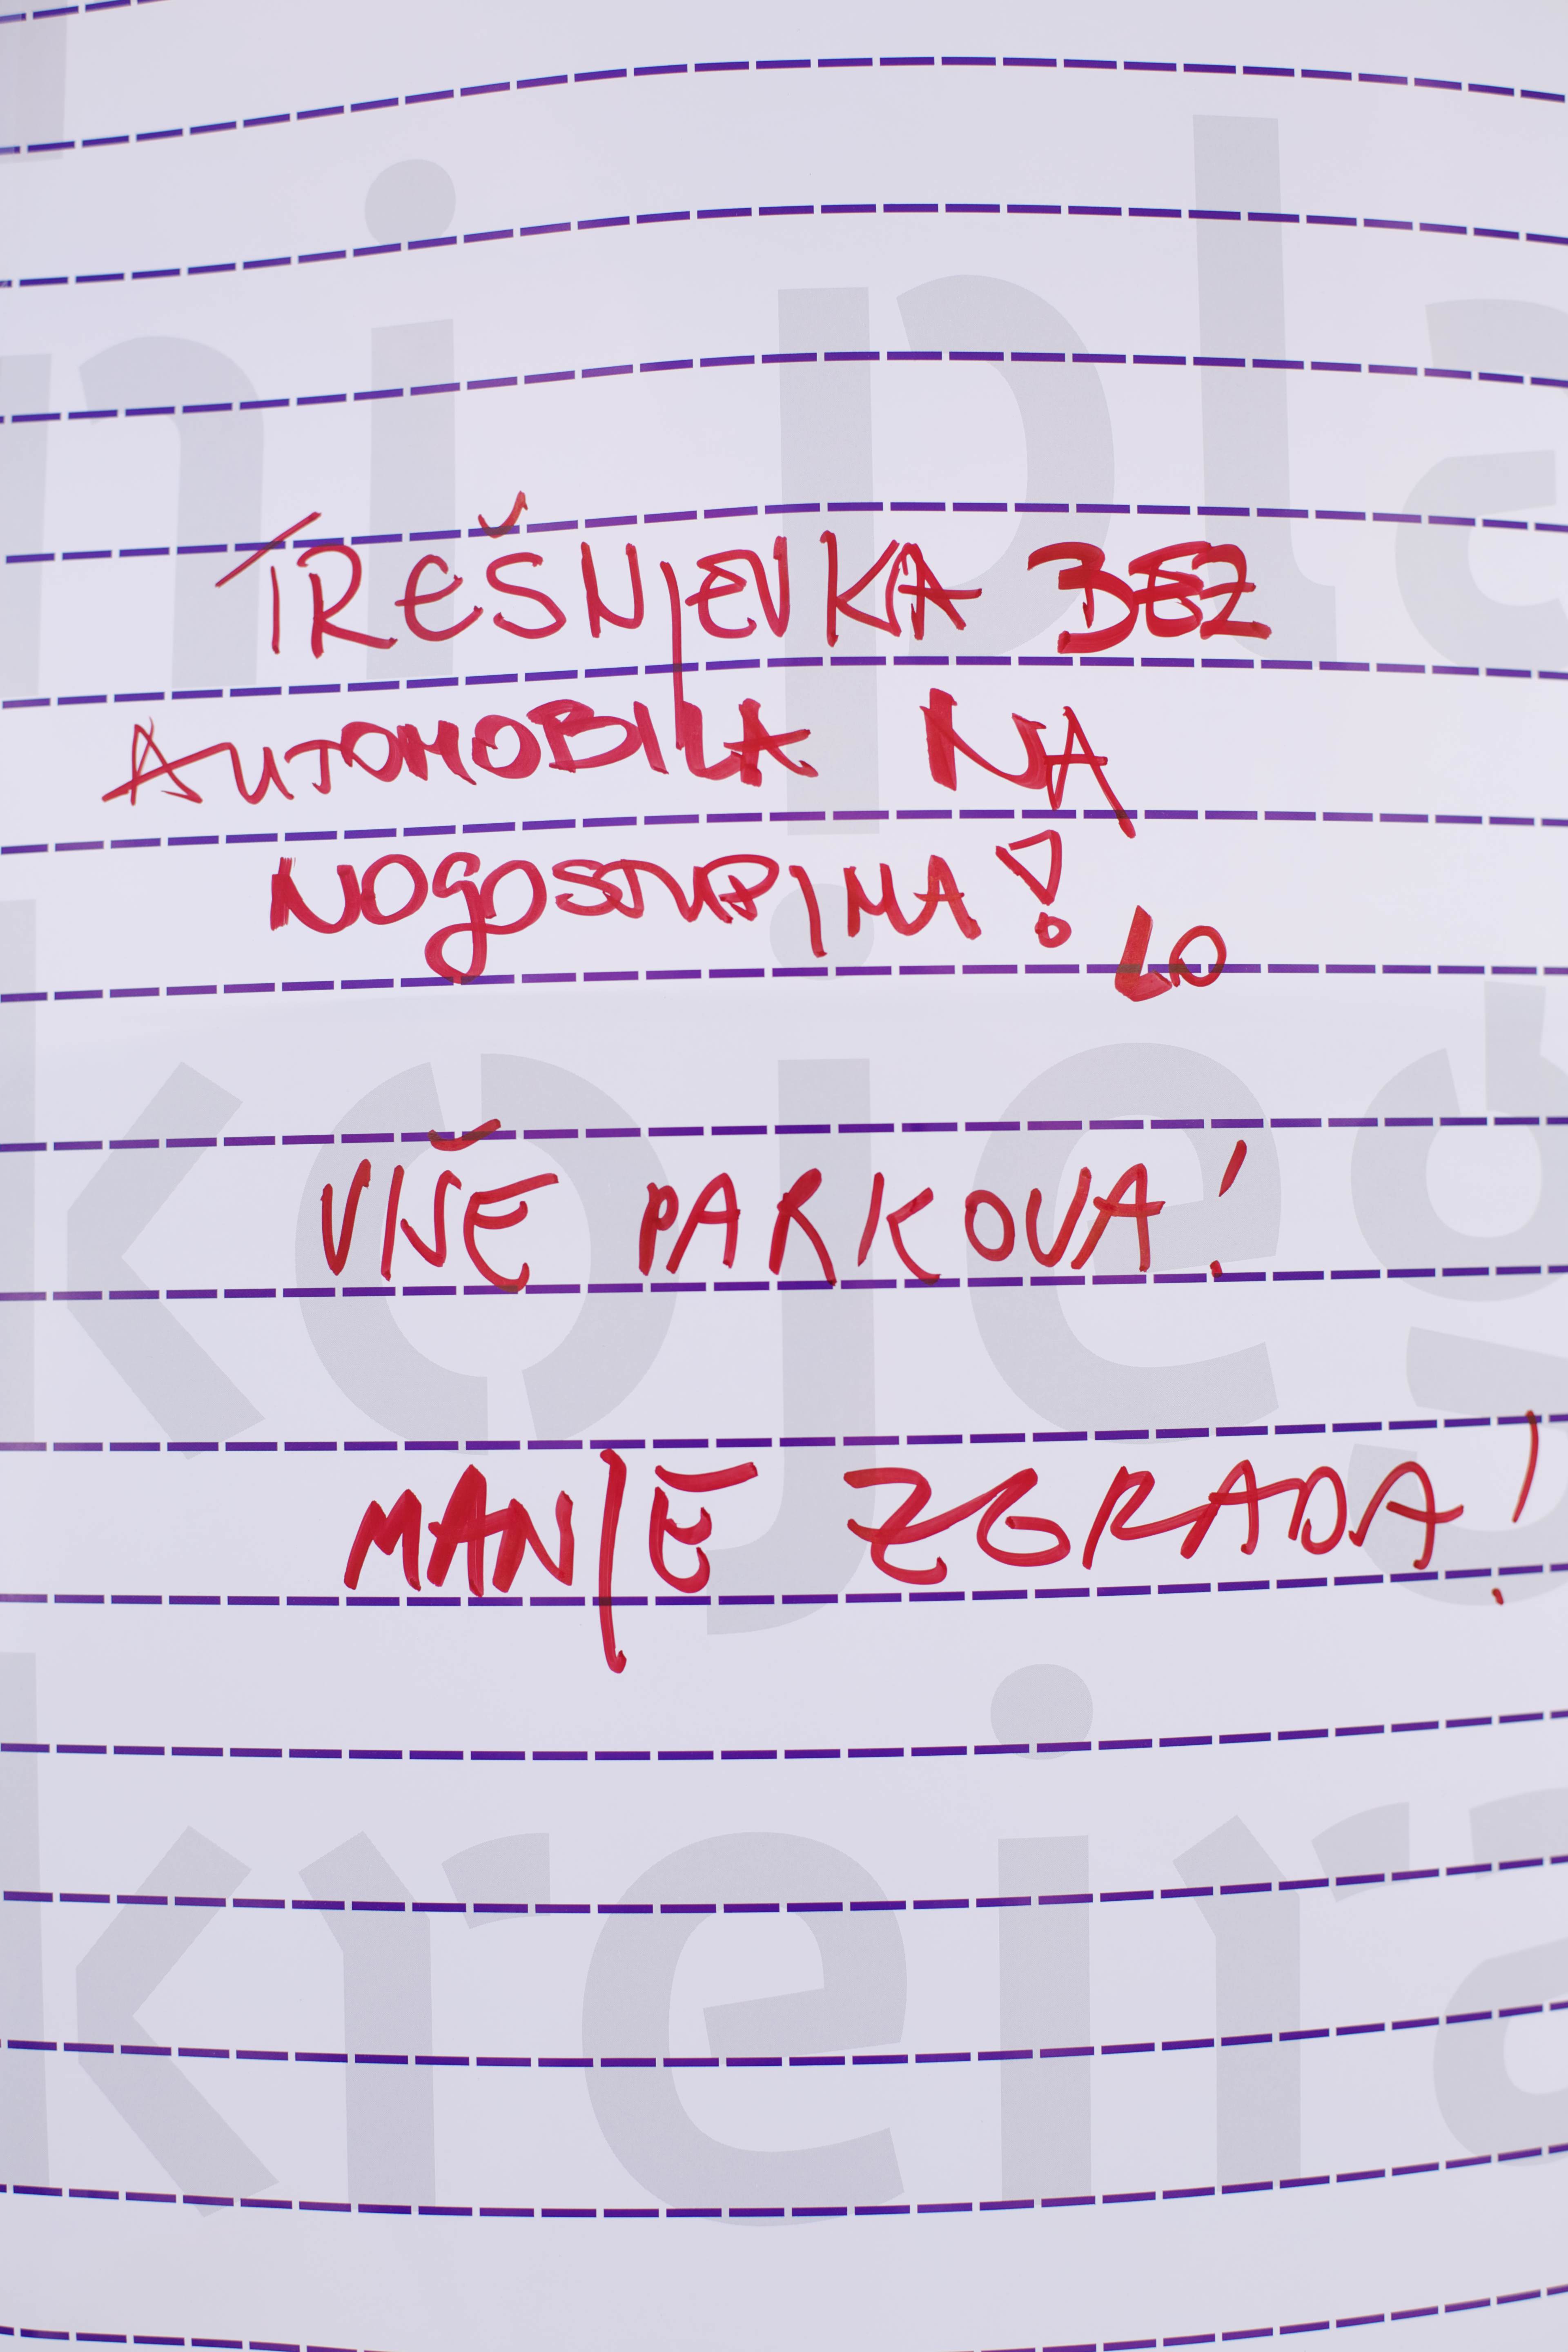 ni pla
TREŠNJEVKA BEZ
AUTOMOBILA NA
NOGOSTUPIMA!
LO
kojeg
VIŠE PARKOVA!
MANJE ZGRADA!
kreira